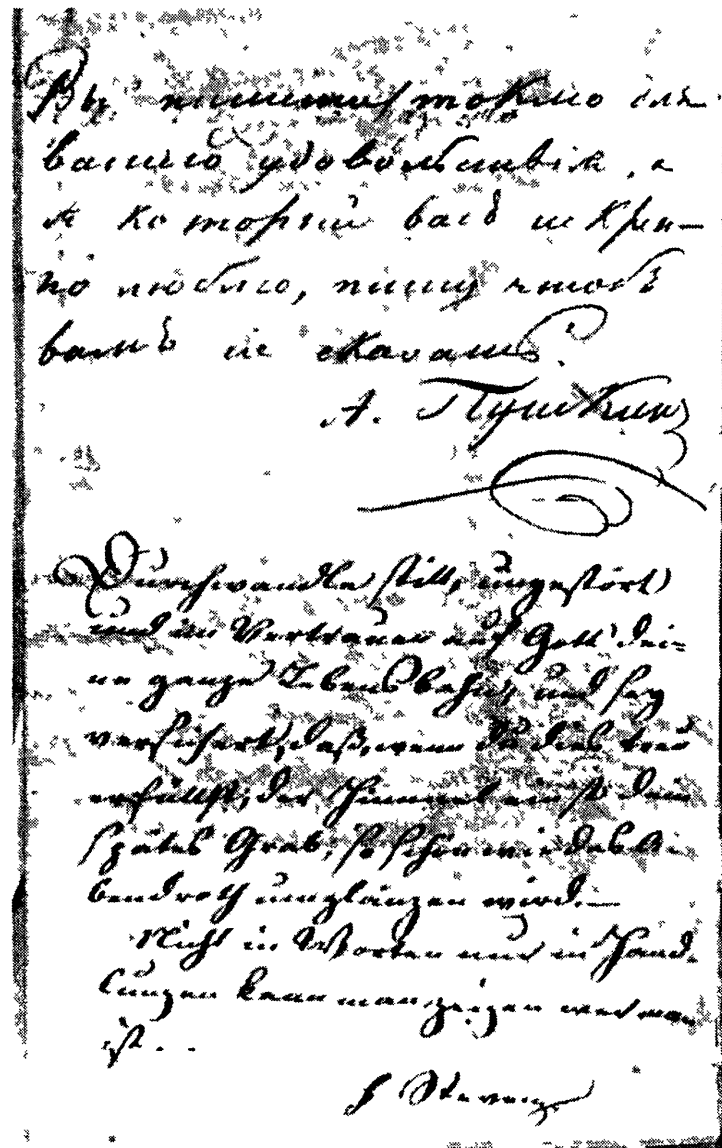 Вы пишите токмо для
вашего удовольствія, а
я который васъ искрен-
но люблю, пишу чтобъ
вамъ сіе сказать.
А. Пушкинъ
Durchwandle still, ungestört
und im Vertrauen auf Gott dei-
ne ganze Lebensbahn, und sey
versichert, daß, wenn du dies treu
erfüllst, der Himmel einst dein
spätes Grab, so schön wie das A-
bendroth umglänzen wird. —
Nicht in Worten nur in Hand-
lungen kann man zeigen wer man
ist. . .